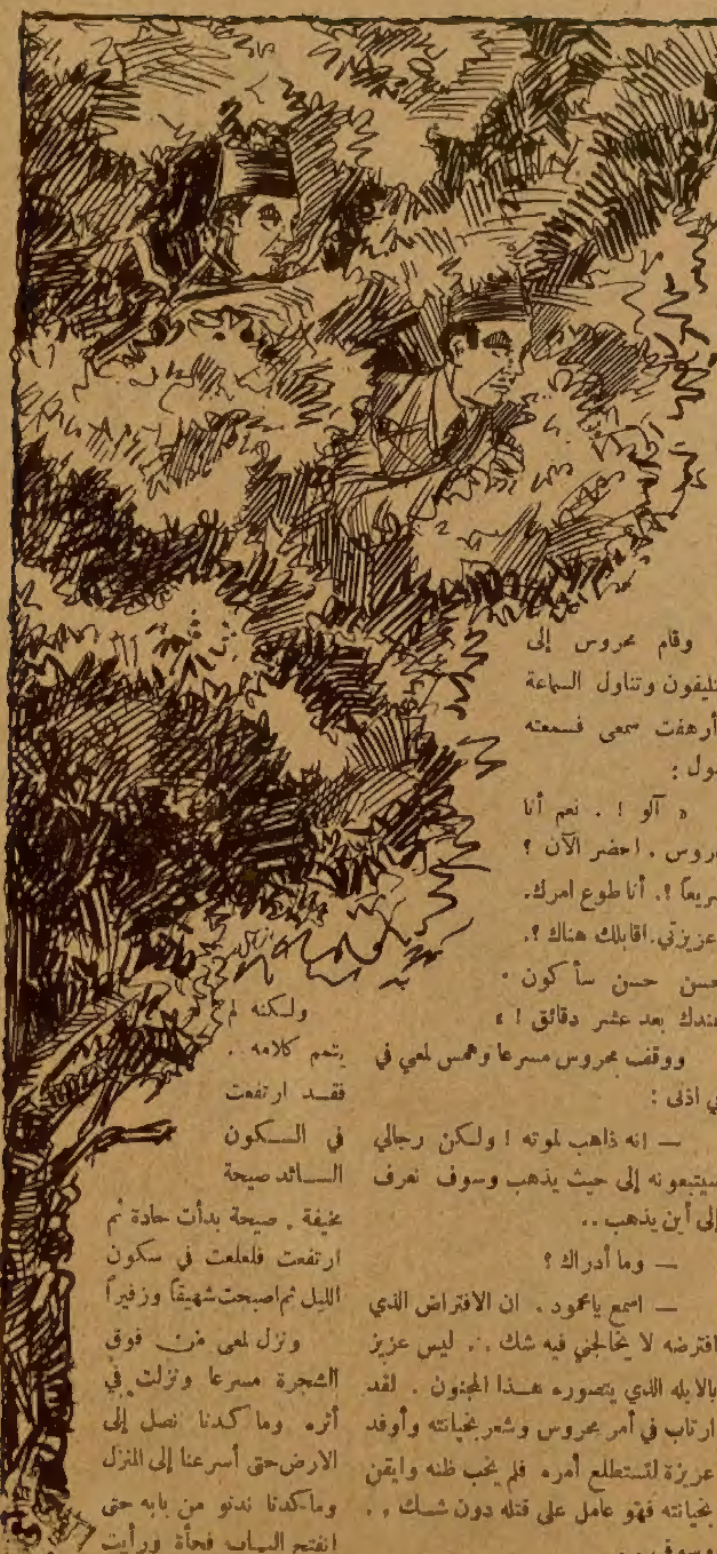 وقام محروس إلى
تليفون وتناول السماعة
أرهفت سمعى فسمعته
ول :
« آلو ! . نعم أنا
روس . احضر الآن ؟
ريعاً ؟. أنا طوع امرك.
عزيزتي. اقابلك هناك ؟.
حسن حسن سأكون
عندك بعد عشر دقائق ! »
ووقف محروس مسرعا وهمس لمعي في
ي اذنى :
— انه ذاهب لموته ! ولكن رجالي
سيتبعونه إلى حيث يذهب وسوف نعرف
إلى أين يذهب ..
— وما أدراك ؟
— اسمع يامحمود . ان الافتراض الذي
افترضه لا يخالجني فيه شك . . ليس عزيز
بالابله الذي يتصوره هـذا المجنون . لقد
ارتاب في أمر محروس وشعر بخيانته وأوفد
عزيزة لتستطلع أمره فلم يخب ظنه وايقن
بخيانته فهو عامل على قتله دون شـك . .
وسوف . .
ولـكنه لم
يتمم كلامه . .
فقـد ارتفعت
في السـكون
السـائد صيحة
مخيفة . صيحة بدأت حادة ثم
ارتفعت فلعلعت في سكون
الليل ثم اصبحت شهيقاً وزفيراً
ونزل لمعى من فوق
الشجرة مسرعا ونزلت في
أثره وما كـدنا نصل إلى
الارض حتى أسرعنا إلى المنزل
وما كدنا ندنو من بابه حتى
انفتح البـاب فجأة ورأيت